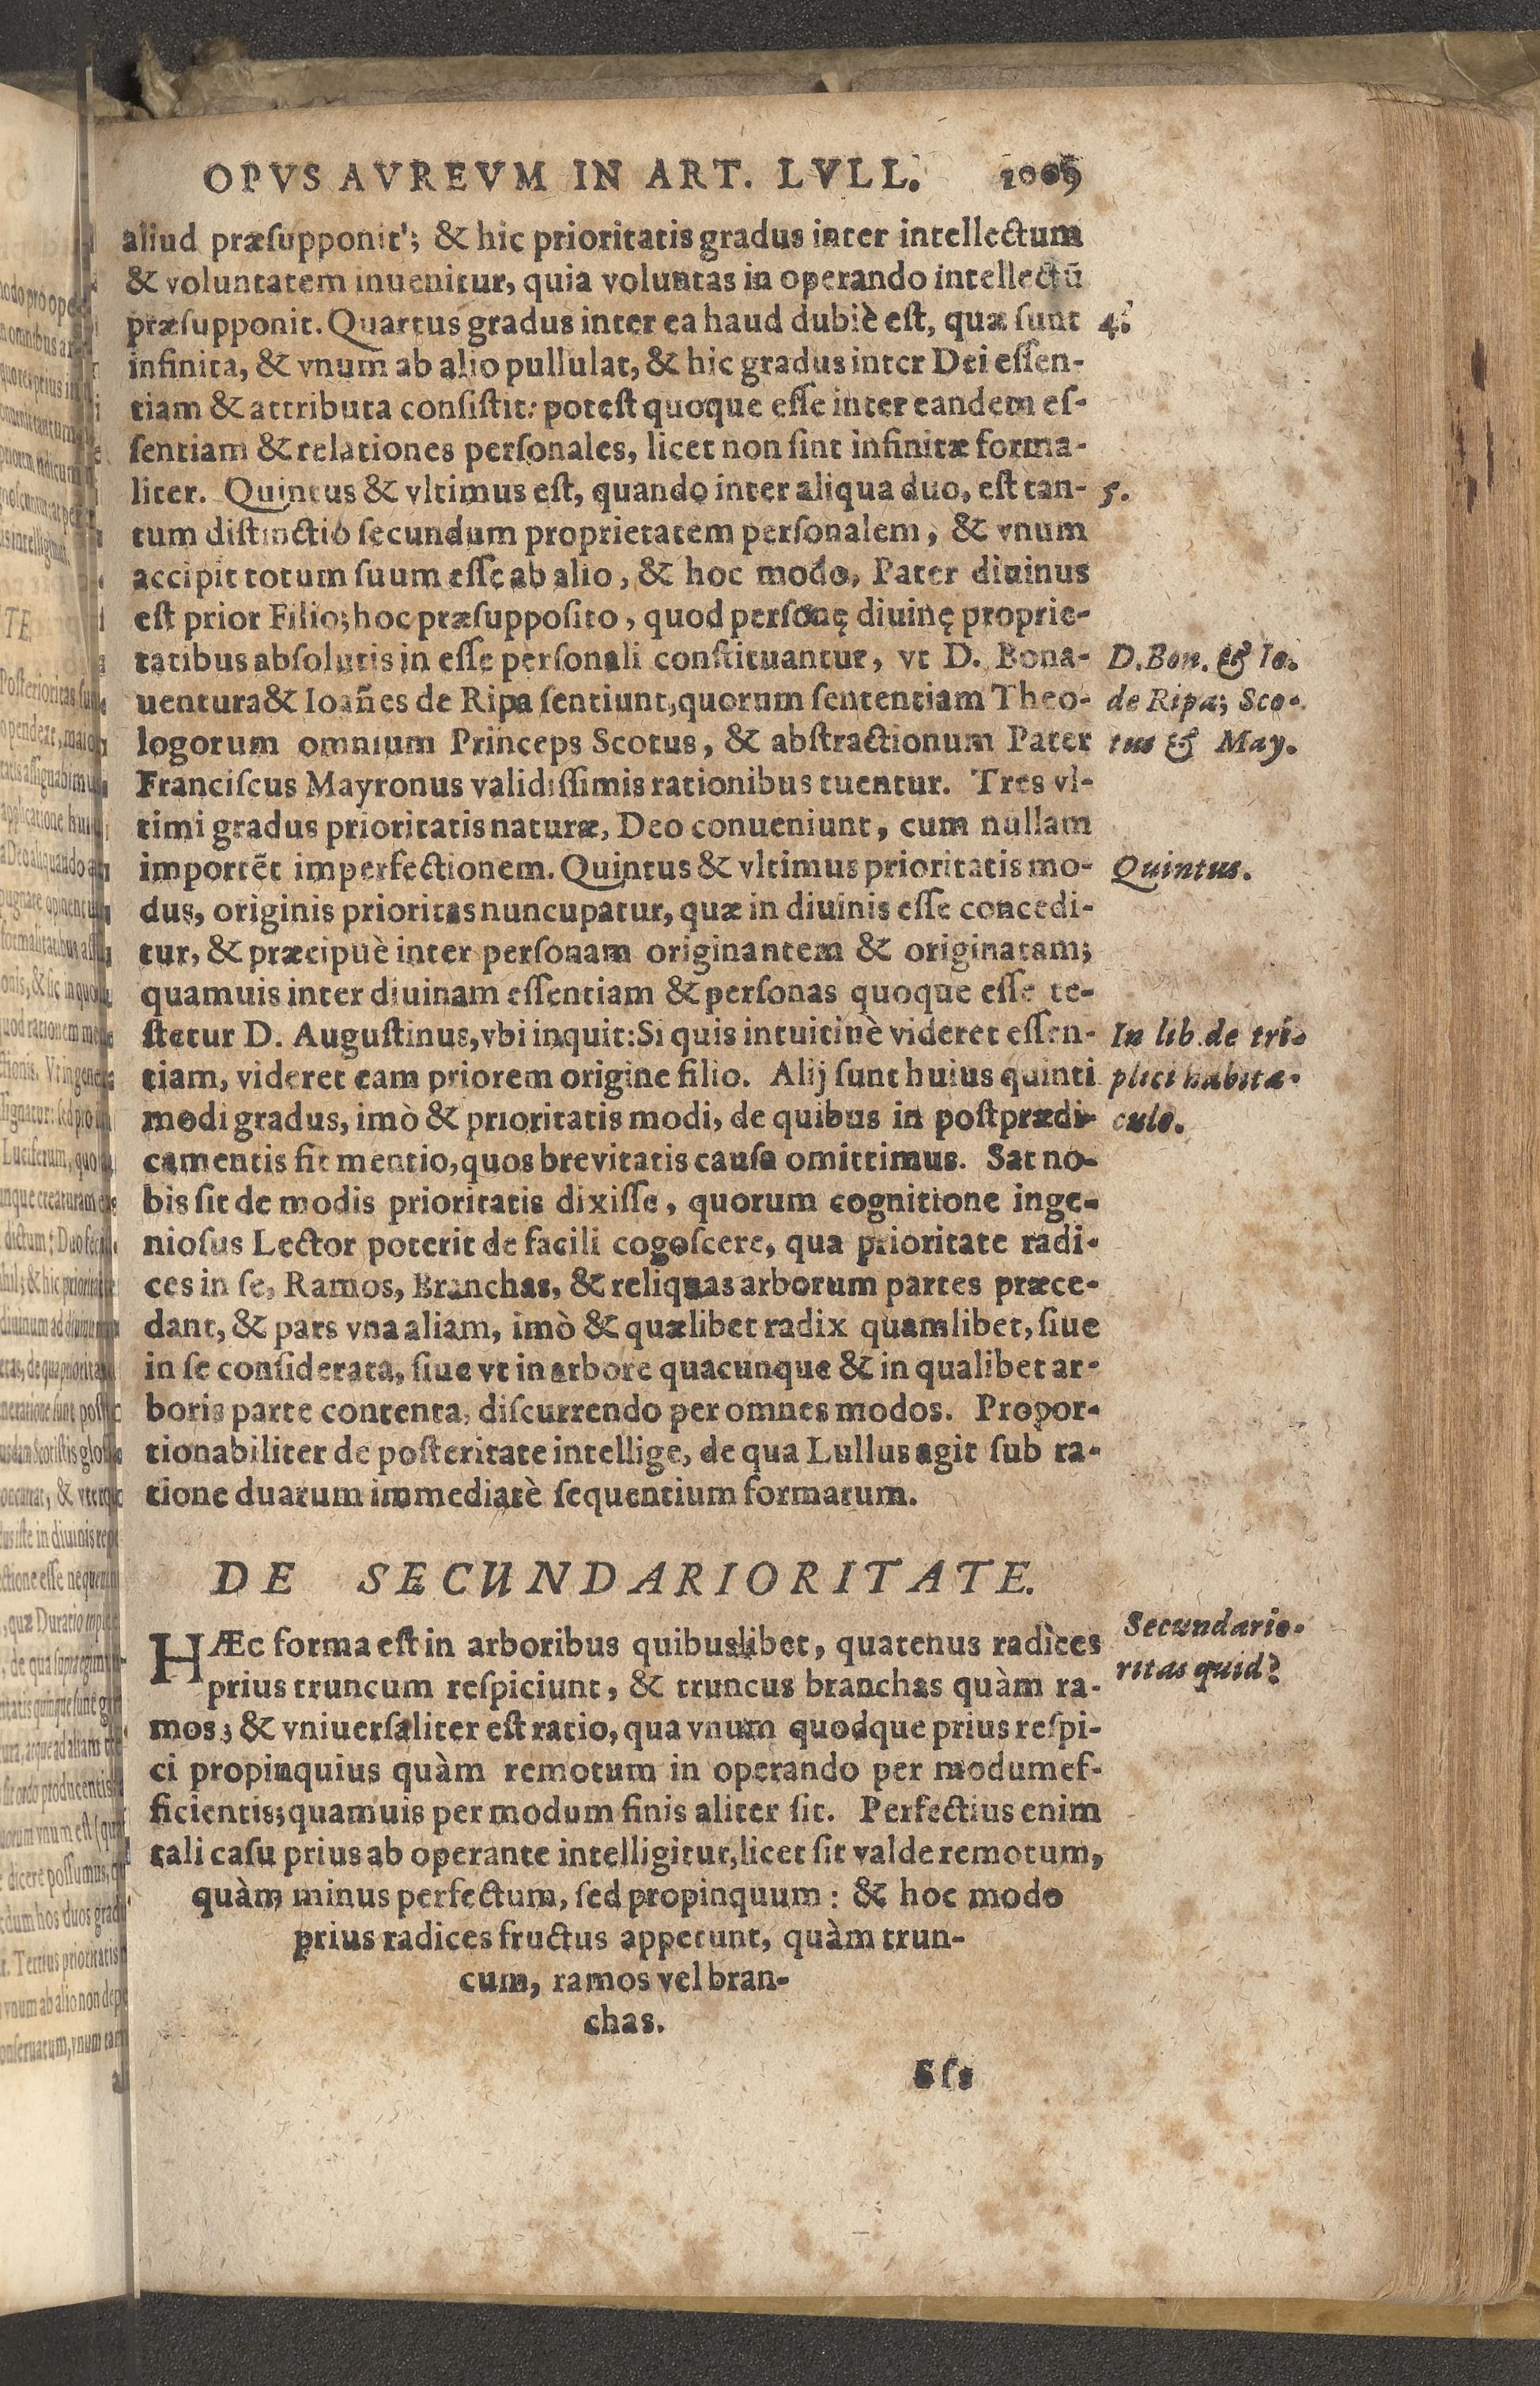 OPVS AVREVM IN ART. LVLL. 1009
aliud præsupponit; & hic prioritatis gradus inter intellectum
& voluntatem inuenitur, quia voluntas in operando intellectū
præsupponit. Quartus gradus inter ea haud dubiè est, quæ sunt
4.
infinita, & vnum ab alio pullulat, & hic gradus inter Dei essen-
tiam & attributa consistit: potest quoque esse inter eandem es-
sentiam & relationes personales, licet non sint infinitæ forma-
liter. Quintus & vltimus est, quando inter aliqua duo, est tan-
5.
tum distinctio secundum proprietatem personalem, & vnum
accipit totum suum esse ab alio, & hoc modo, Pater diuinus
est prior Filio; hoc præsupposito, quod personę diuinę proprie-
tatibus absolutis in esse personali constituantur, vt D. Bona-
D. Bon. & Io.
uentura & Ioañes de Ripa sentiunt, quorum sententiam Theo-
de Ripa; Sco-
logorum omnium Princeps Scotus, & abstractionum Pater
tus & May.
Franciscus Mayronus validissimis rationibus tuentur. Tres vl-
timi gradus prioritatis naturæ, Deo conueniunt, cum nullam
importēt imperfectionem. Quintus & vltimus prioritatis mo-
Quintus.
dus, originis prioritas nuncupatur, quæ in diuinis esse concedi-
tur, & præcipuè inter personam originantem & originatam;
quamuis inter diuinam essentiam & personas quoque esse te-
stetur D. Augustinus, vbi inquit: Si quis intuitiuè videret essen-
In lib. de tri-
tiam, videret eam priorem origine filio. Alij sunt huius quinti
plici habita-
modi gradus, imò & prioritatis modi, de quibus in postprædi-
culo.
camentis fit mentio, quos brevitatis causa omittimus. Sat no-
bis sit de modis prioritatis dixisse, quorum cognitione inge-
niosus Lector poterit de facili cogoscere, qua prioritate radi-
ces in se, Ramos, Branchas, & reliquas arborum partes præce-
dant, & pars vna aliam, imò & quælibet radix quamlibet, siue
in se considerata, siue vt in arbore quacunque & in qualibet ar-
boris parte contenta, discurrendo per omnes modos. Propor-
tionabiliter de posteritate intellige, de qua Lullus agit sub ra-
tione duarum immediatè sequentium formarum.
DE SECUNDARIORITATE.
HÆc forma est in arboribus quibuslibet, quatenus radìces
Secundario-
ritas quid?
prius truncum respiciunt, & truncus branchas quàm ra-
mos; & vniuersaliter est ratio, qua vnum quodque prius respi-
ci propinquius quàm remotum in operando per modum ef-
ficientis; quamuis per modum finis aliter sit. Perfectius enim
tali casu prius ab operante intelligitur, licet sit valde remotum,
quàm minus perfectum, sed propinquum: & hoc modo
prius radices fructus appetunt, quàm trun-
cum, ramos vel bran-
chas.
Sss